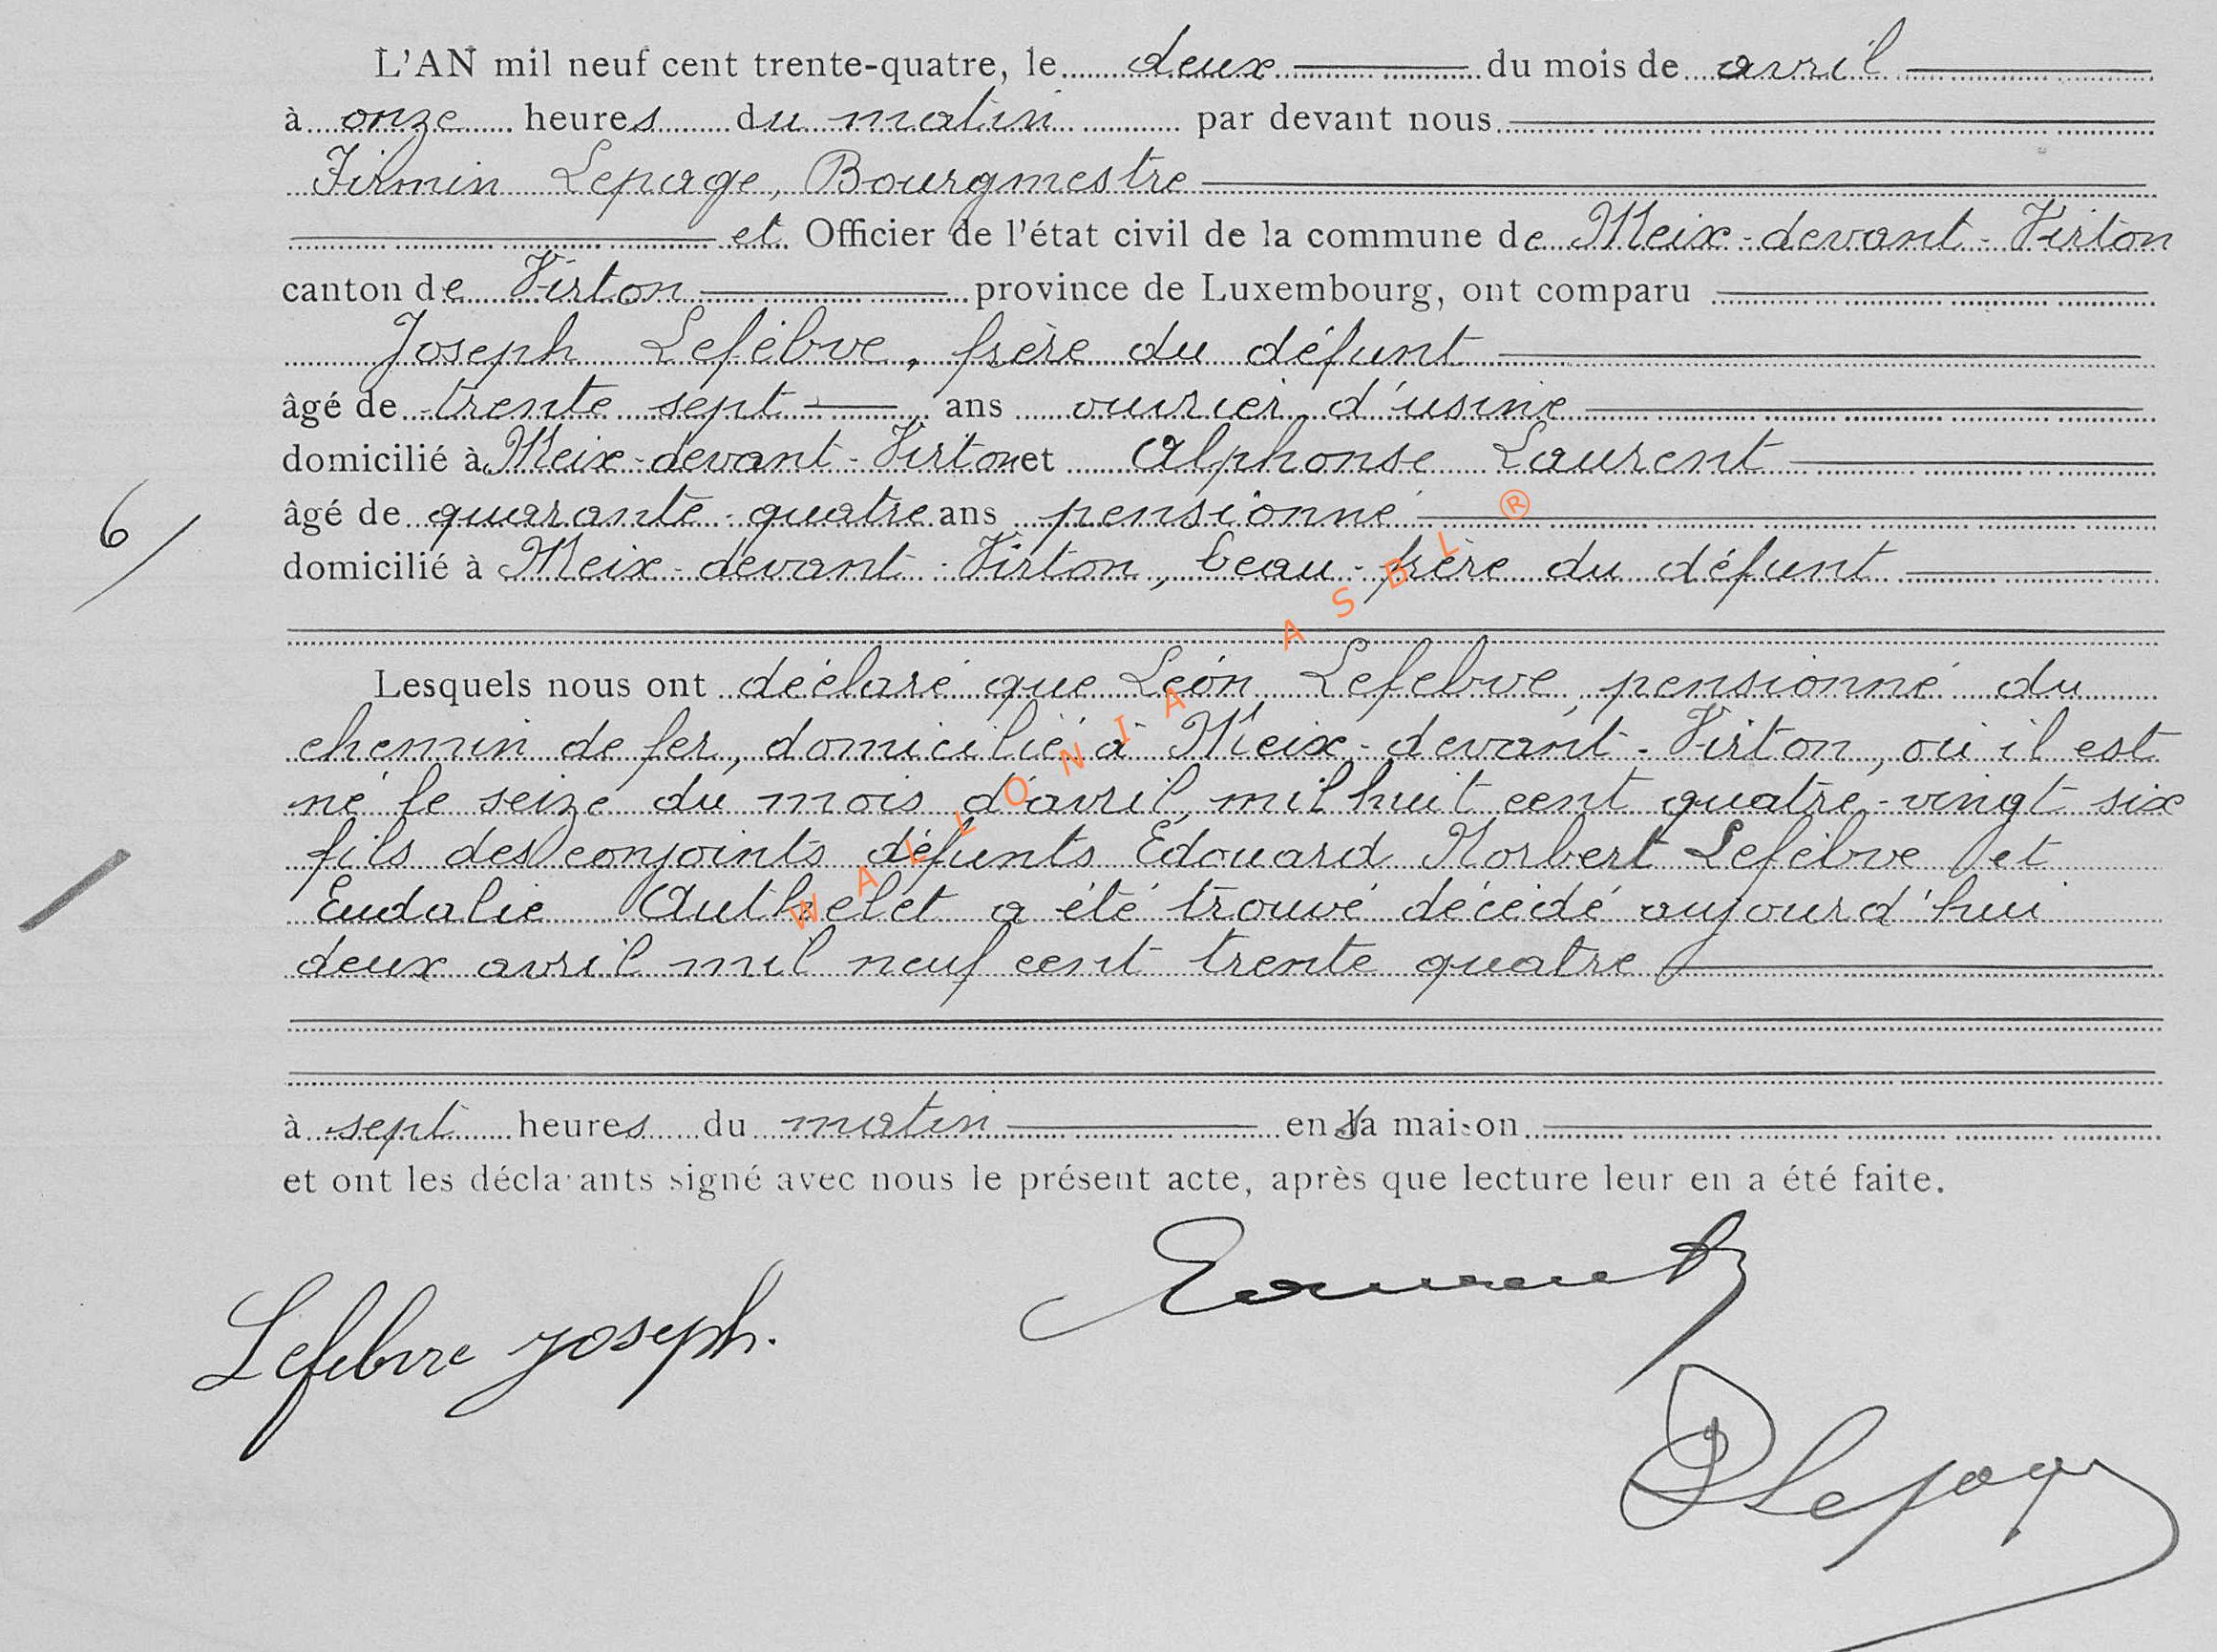 L'AN mil neuf cent trente-quatre, le deux du mois de avril
à onze heures du matin par devant nous
Firmin Lepage, Bourgmestre
et Officier de l'état civil de la commune de Meix-devant-Virton
canton de Virton province de Luxembourg, ont comparu
Joseph Lefèbvre, frère du défunt
âgé de trente sept ans ouvrier d'usine
domicilié à Meix-devant-Virton et Alphonse Laurent
âgé de quarante-quatre ans pensionné
6/
domicilié à Meix-devant-Virton, beau-frère du défunt
Lesquels nous ont déclaré que Léon Lefebvre, pensionné du
chemin de fer, domicilié à Meix-devant-Virton, où il est
né le seize du mois d'avril mil huit cent quatre-vingt six
fils des conjoints défunts Edouard Norbert Lefèbvre et
Eudalie Authelet a été trouvé décédé aujourd'hui
deux avril mil neuf cent trente quatre
à sept heures du matin en sa maison
et ont les déclarants signé avec nous le présent acte, après que lecture leur en a été faite.
Laurent
Lefebvre Joseph.
Lepage
WALLONIA ASBL ®